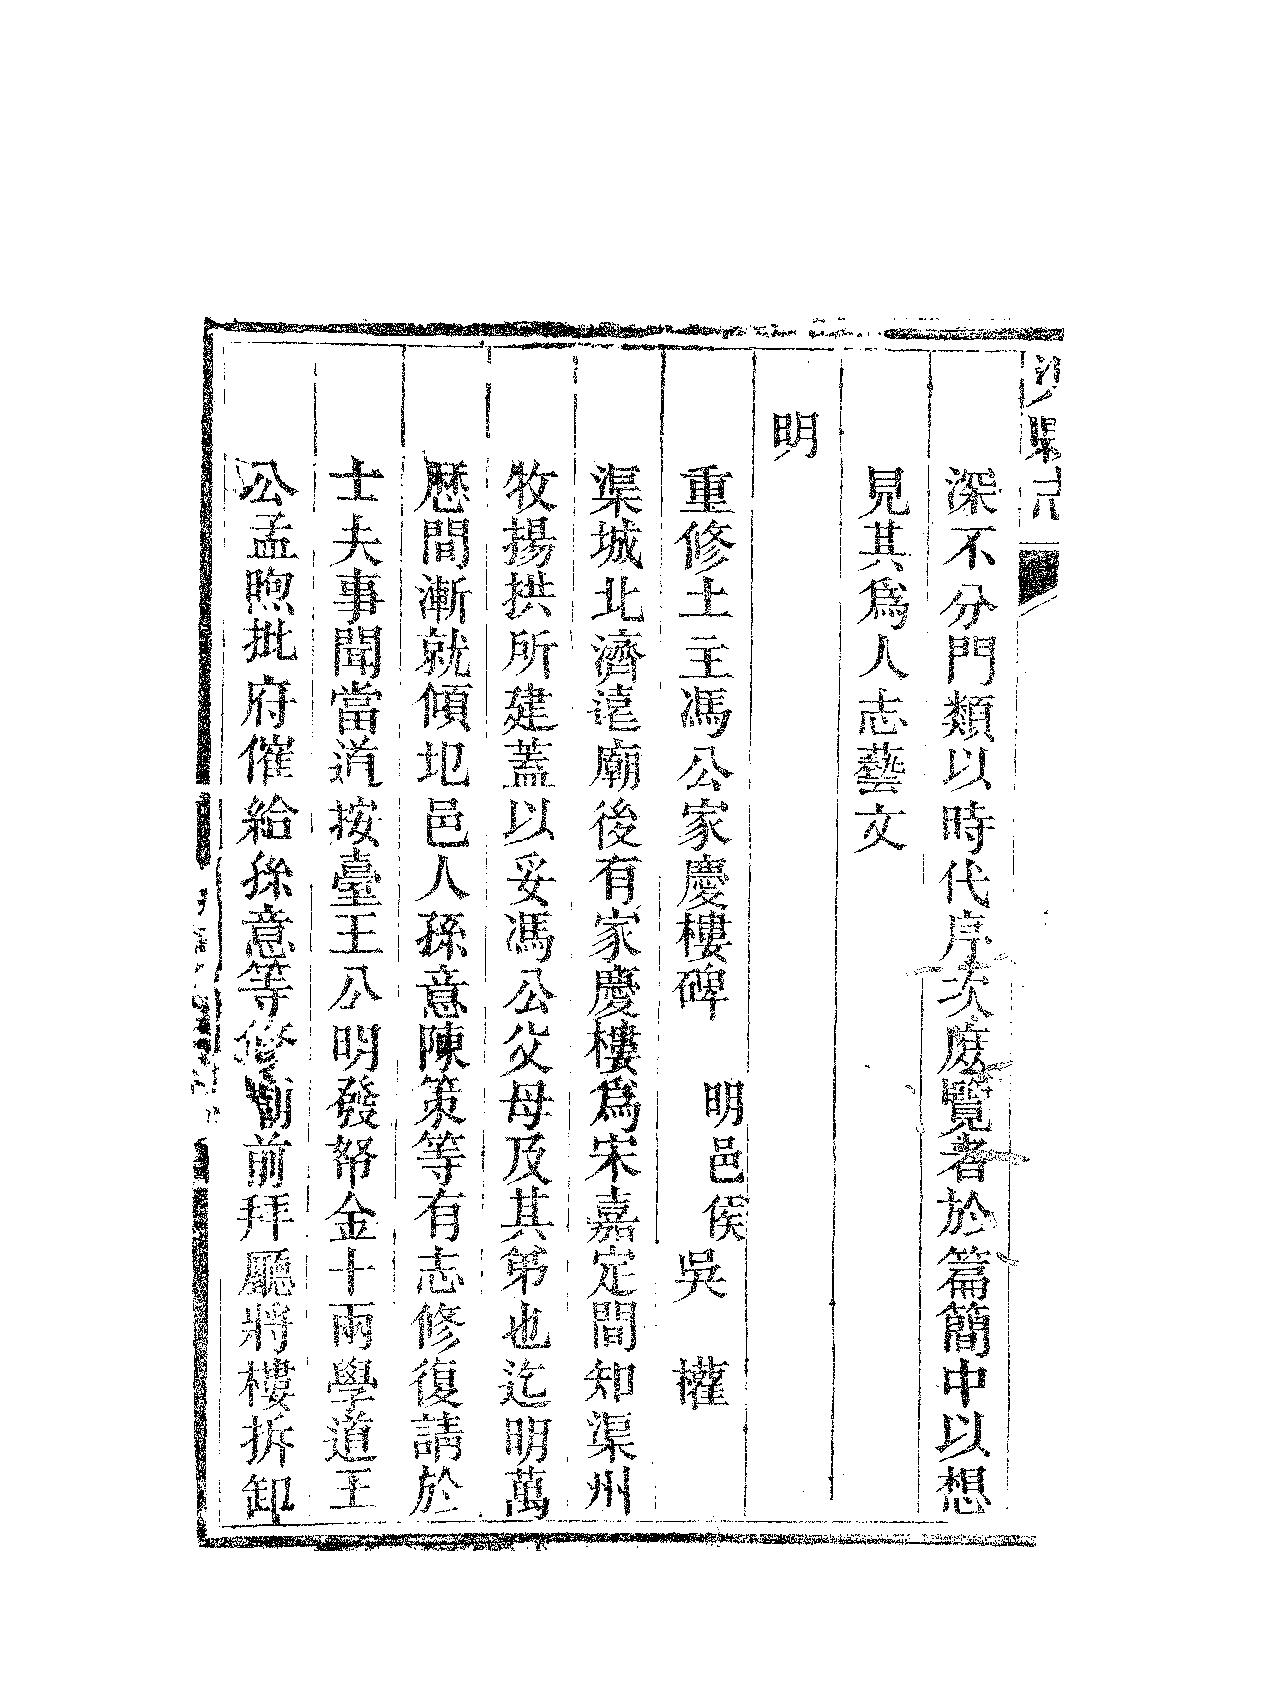 深不分門類以時代序次庶覽者於篇簡中以想
見其爲人志藝文
明
重修土主馮公家慶樓碑 明邑侯吳 權
渠城北濟遠廟後有家慶樓爲宋嘉定間知渠州
牧揚拱所建蓋以妥馮公父母及其弟也迄明萬
歷間漸就傾圯邑人孫意陳策等有志修復請於
士夫事聞當道按臺王公明發帑金十兩學道王
公孟煦批府催給孫意等修廟前拜廳將樓拆卸